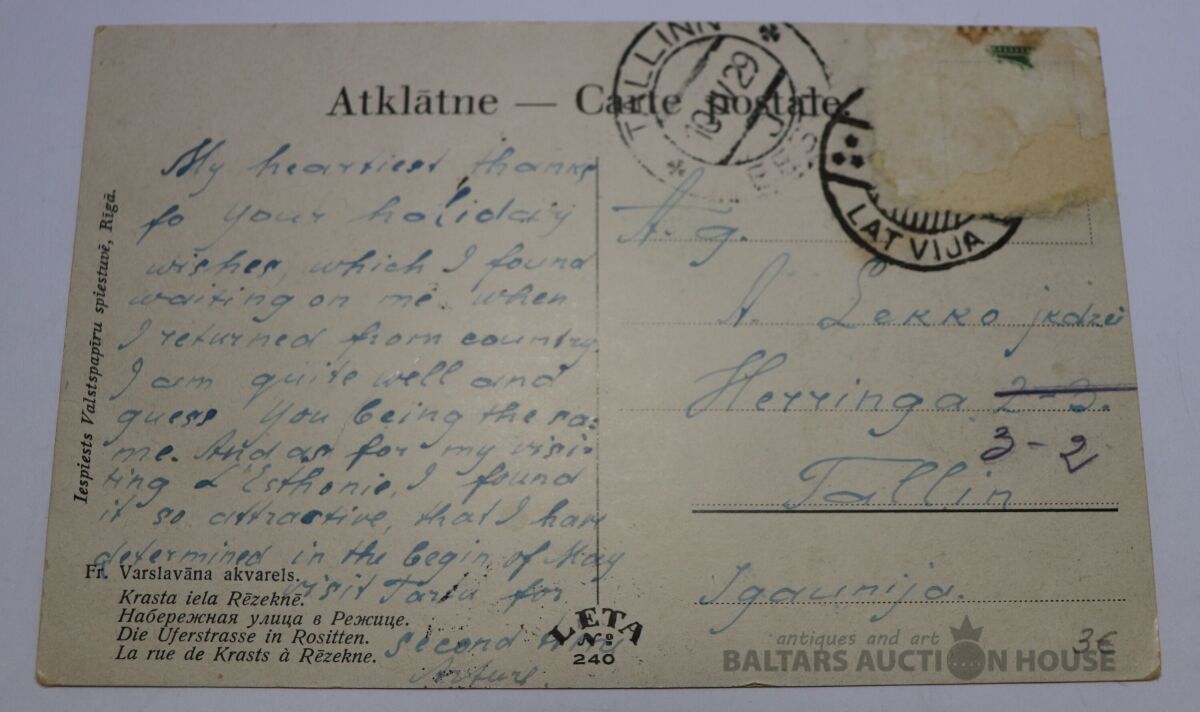 Atklātne — Carte postale.
TALLINN
10 IV 29
LATVIJA
My heartiest thanks
fo your holiday
wishes, which I found
waiting on me when
I returned from country
I am quite well and
guess you being the sa-
me. And as for my visi-
ting d'Esthonie, I found
it so attractive, that I have
determined in the begin of May
visit Tartu for
second time
Arture.
A. g.
A. Lekko jkdzei
Herringa 2-3.
3-2
Tallin
Igaunija.
Iespiests Valstspapīru spiestuvē, Rīgā.
Fr. Varslavāna akvarels.
Krasta iela Rēzeknē.
Набережная улица в Режице.
Die Uferstrasse in Rositten.
La rue de Krasts à Rēzekne.
LETA
№
240
3€
antiques and art
BALTARS AUCTION HOUSE